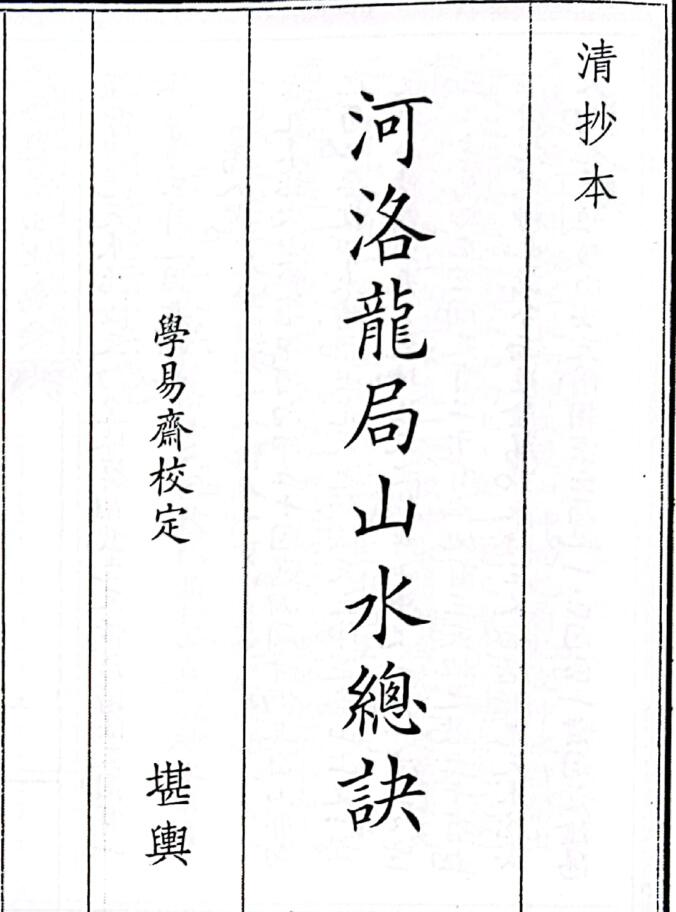 清抄本
河洛龍局山水總訣
學易齋校定
堪輿